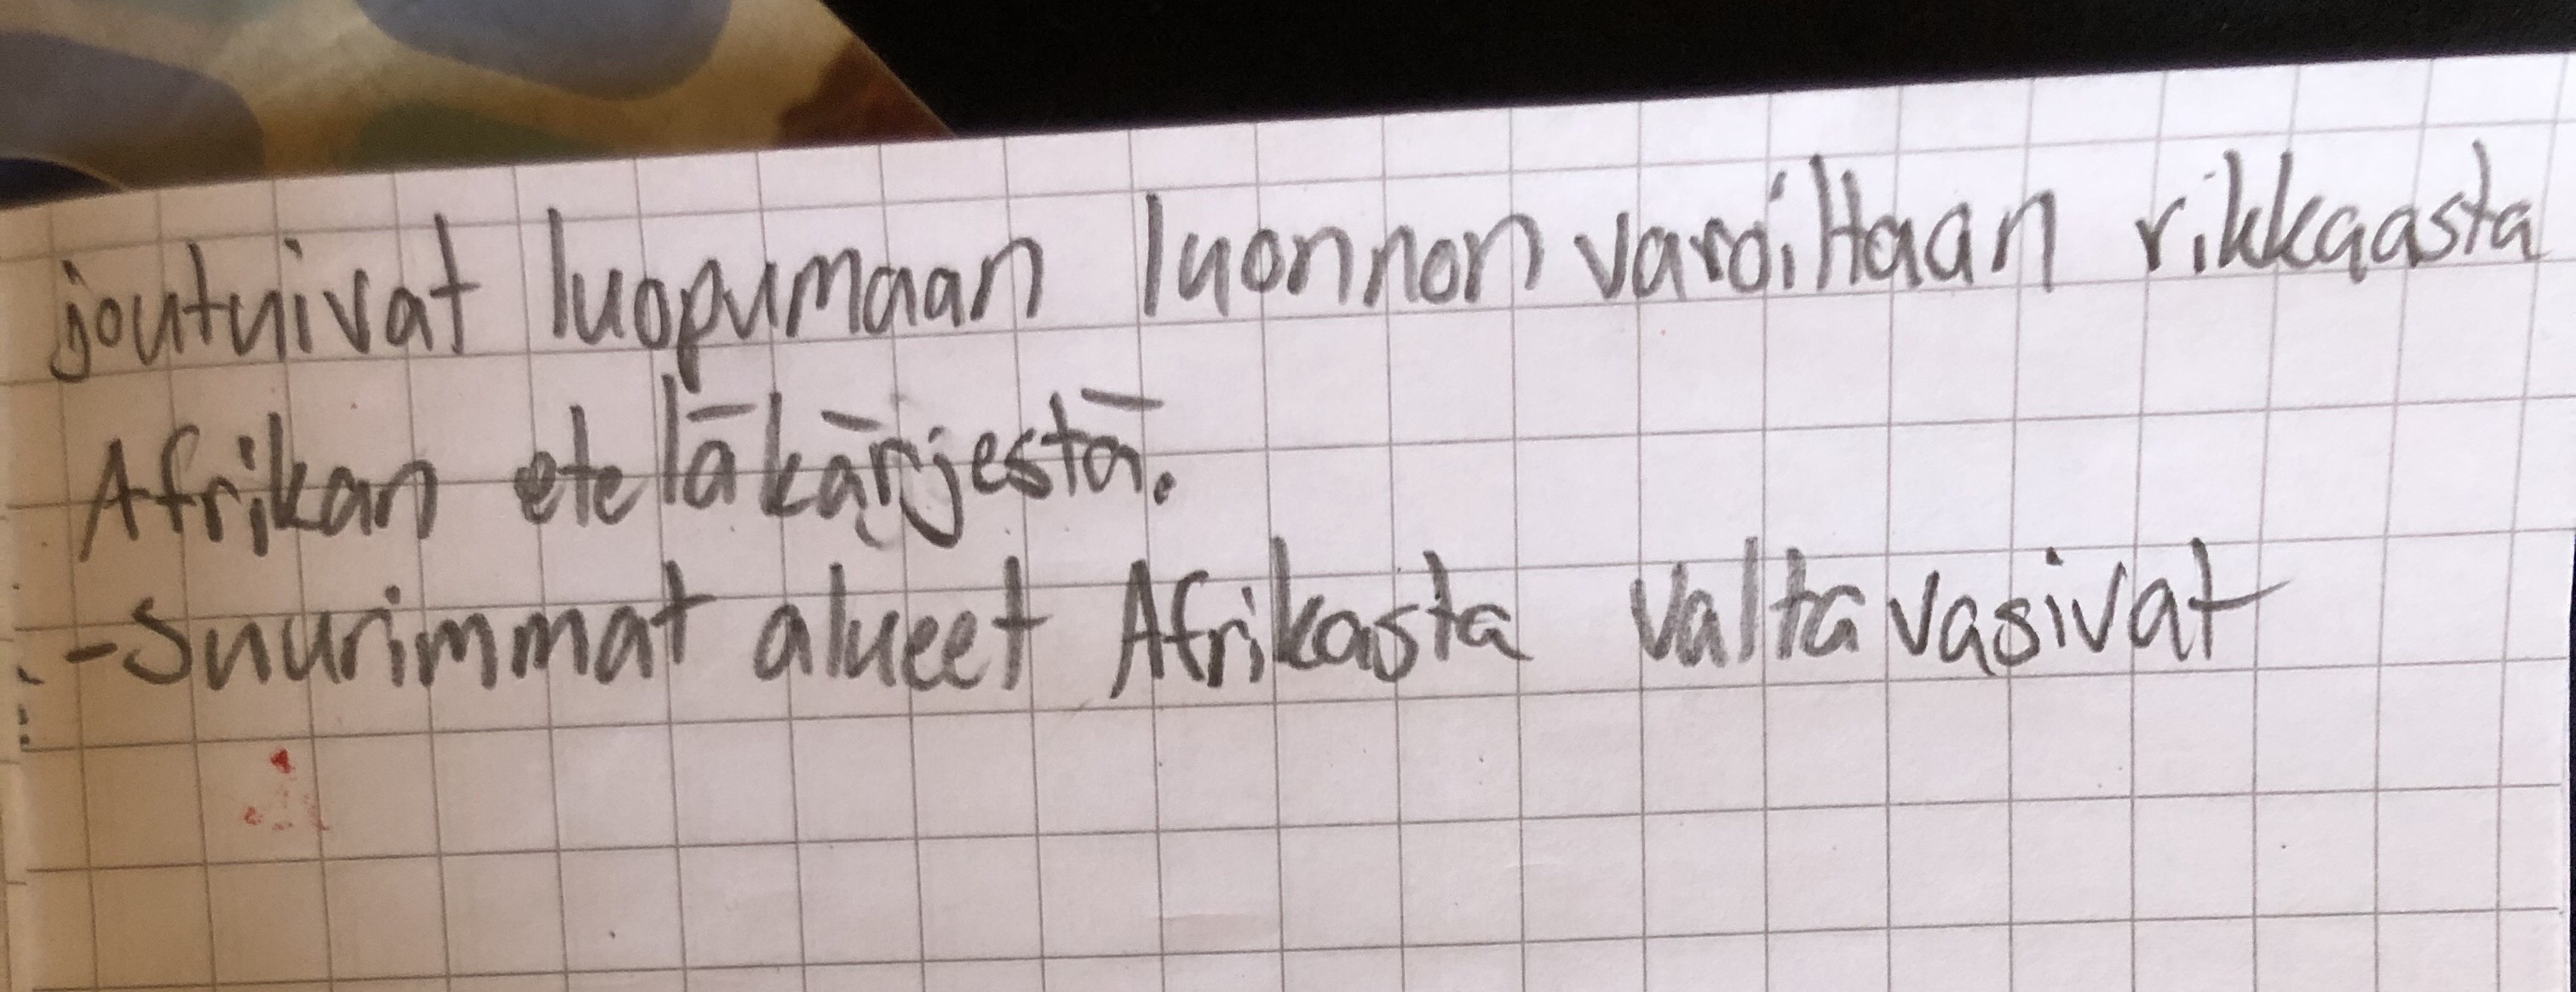 joutuivat luopumaan luonnonvaroiltaan rikkaasta
Afrikan eteläkärjestä.
-Suurimmat alueet Afrikasta valtavasivat